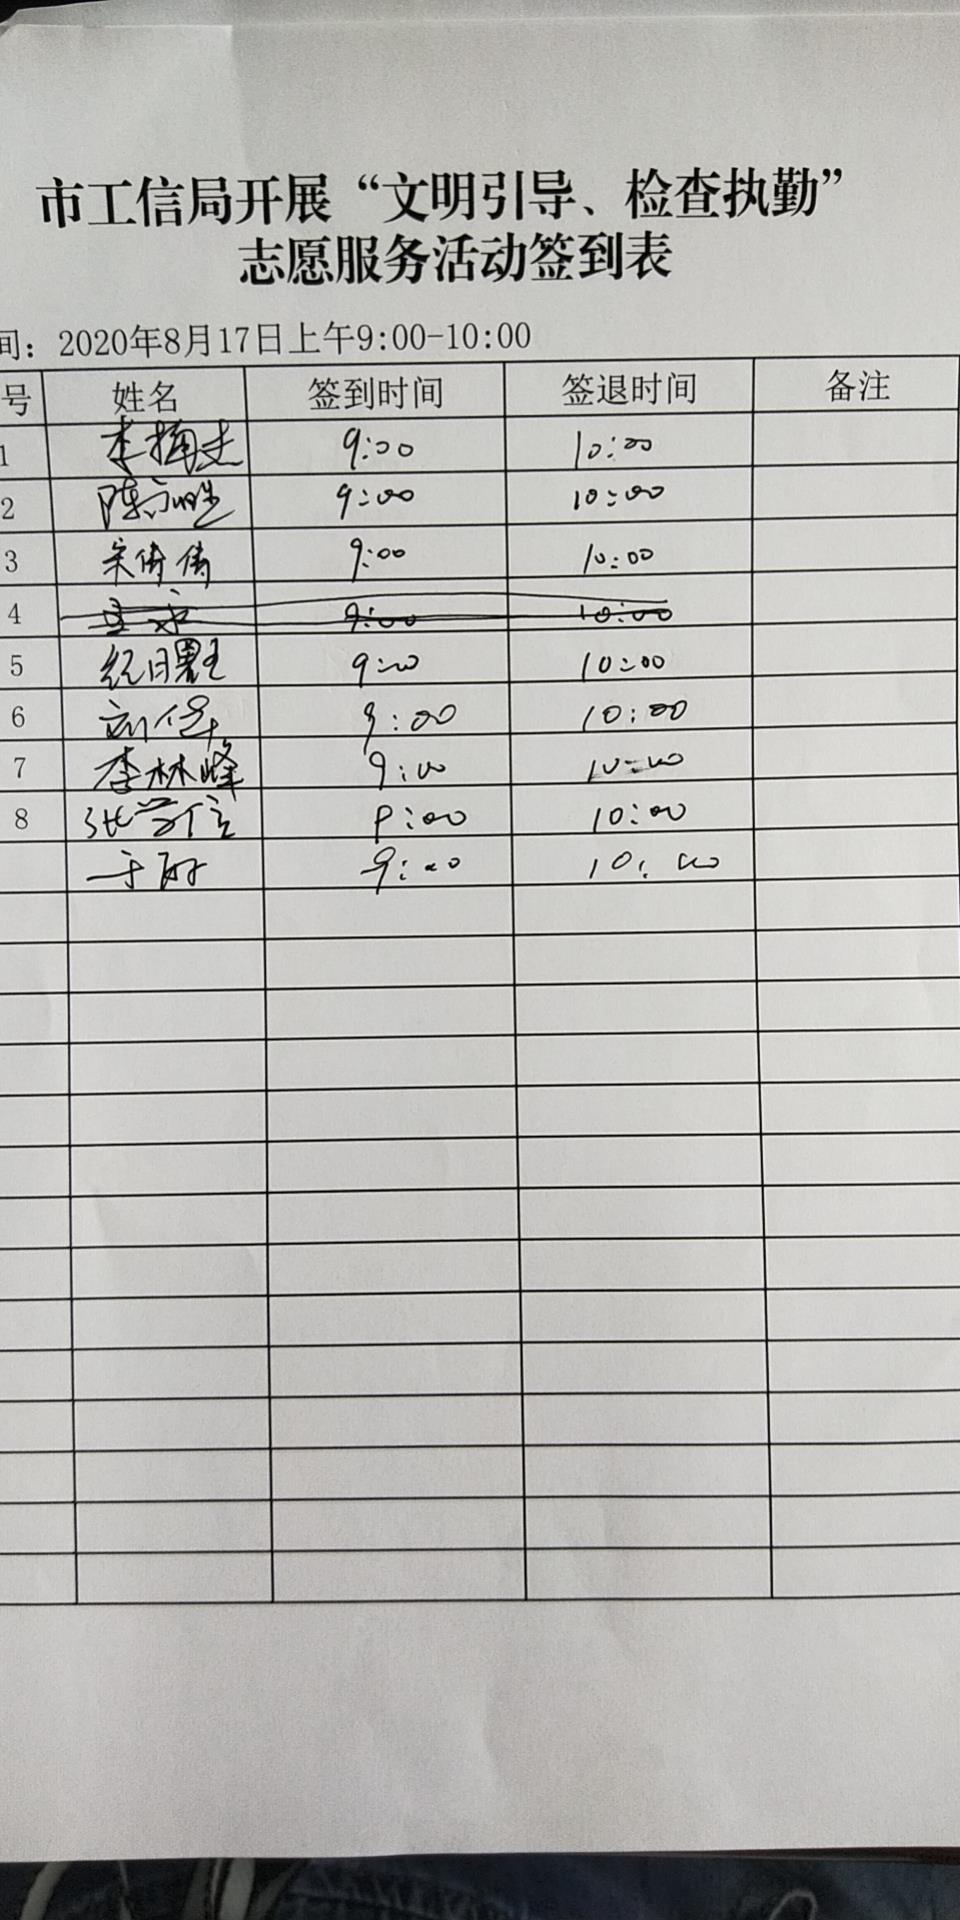 市工信局开展“文明引导、检查执勤”
志愿服务活动签到表
间：2020年8月17日上午9:00-10:00
号 姓名 签到时间 签退时间 备注
1 李 9:00 10:00
2 陈 9:00 10:00
3 宋倩倩 9:00 10:00
4 9:00 10:00
5 纪日 9:00 10:00
6 刘 9:00 10:00
7 李林峰 9:00 10:00
8 张学信 9:00 10:00
于 9:00 10:00